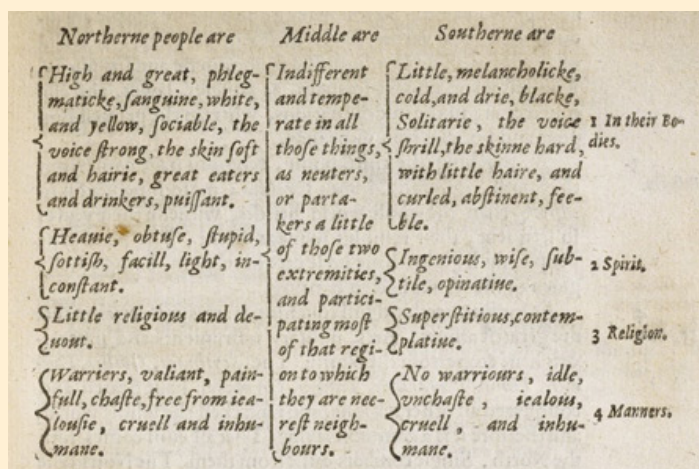 Northerne people are
High and great, phleg-
maticke, ſanguine, white,
and yellow, ſociable, the
voice ſtrong, the skin ſoft
and hairie, great eaters
and drinkers, puiſſant.
Heauie, obtuſe, ſtupid,
ſottiſh, facill, light, in-
conſtant.
Little religious and de-
uout.
Warriers, valiant, pain-
full, chaſte, free from iea-
louſie, cruell and inhu-
mane.
Middle are
Indifferent
and tempe-
rate in all
thoſe things,
as neuters,
or parta-
kers a little
of thoſe two
extremities,
and partici-
pating moſt
of that regi-
on to which
they are nee-
reſt neigh-
bours.
Southerne are
Little, melancholicke,
cold, and drie, blacke,
Solitarie, the voice
ſhrill, the skinne hard,
with little haire, and
curled, abſtinent, fee-
ble.
Ingenious, wiſe, ſub-
tile, opinatiue.
Superſtitious, contem-
platiue.
No warriours, idle,
vnchaſte, iealous,
cruell, and inhu-
mane.
1 In their Bo-
dies.
2 Spirit.
3 Religion.
4 Manners.